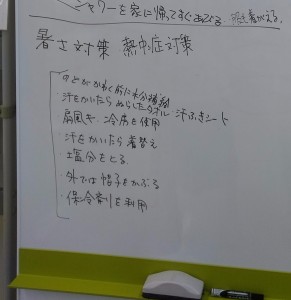 シャワーを家に帰ってすぐあびる 服を着がえる。
暑さ対策 熱中症対策
・のどがかわく前に水分補給
・汗をかいたらぬらしたタオル 汗ふきシート
・扇風き、冷房を使用
・汗をかいたら着替え
・塩分をとる。
・外では帽子をかぶる
・保冷剤を利用